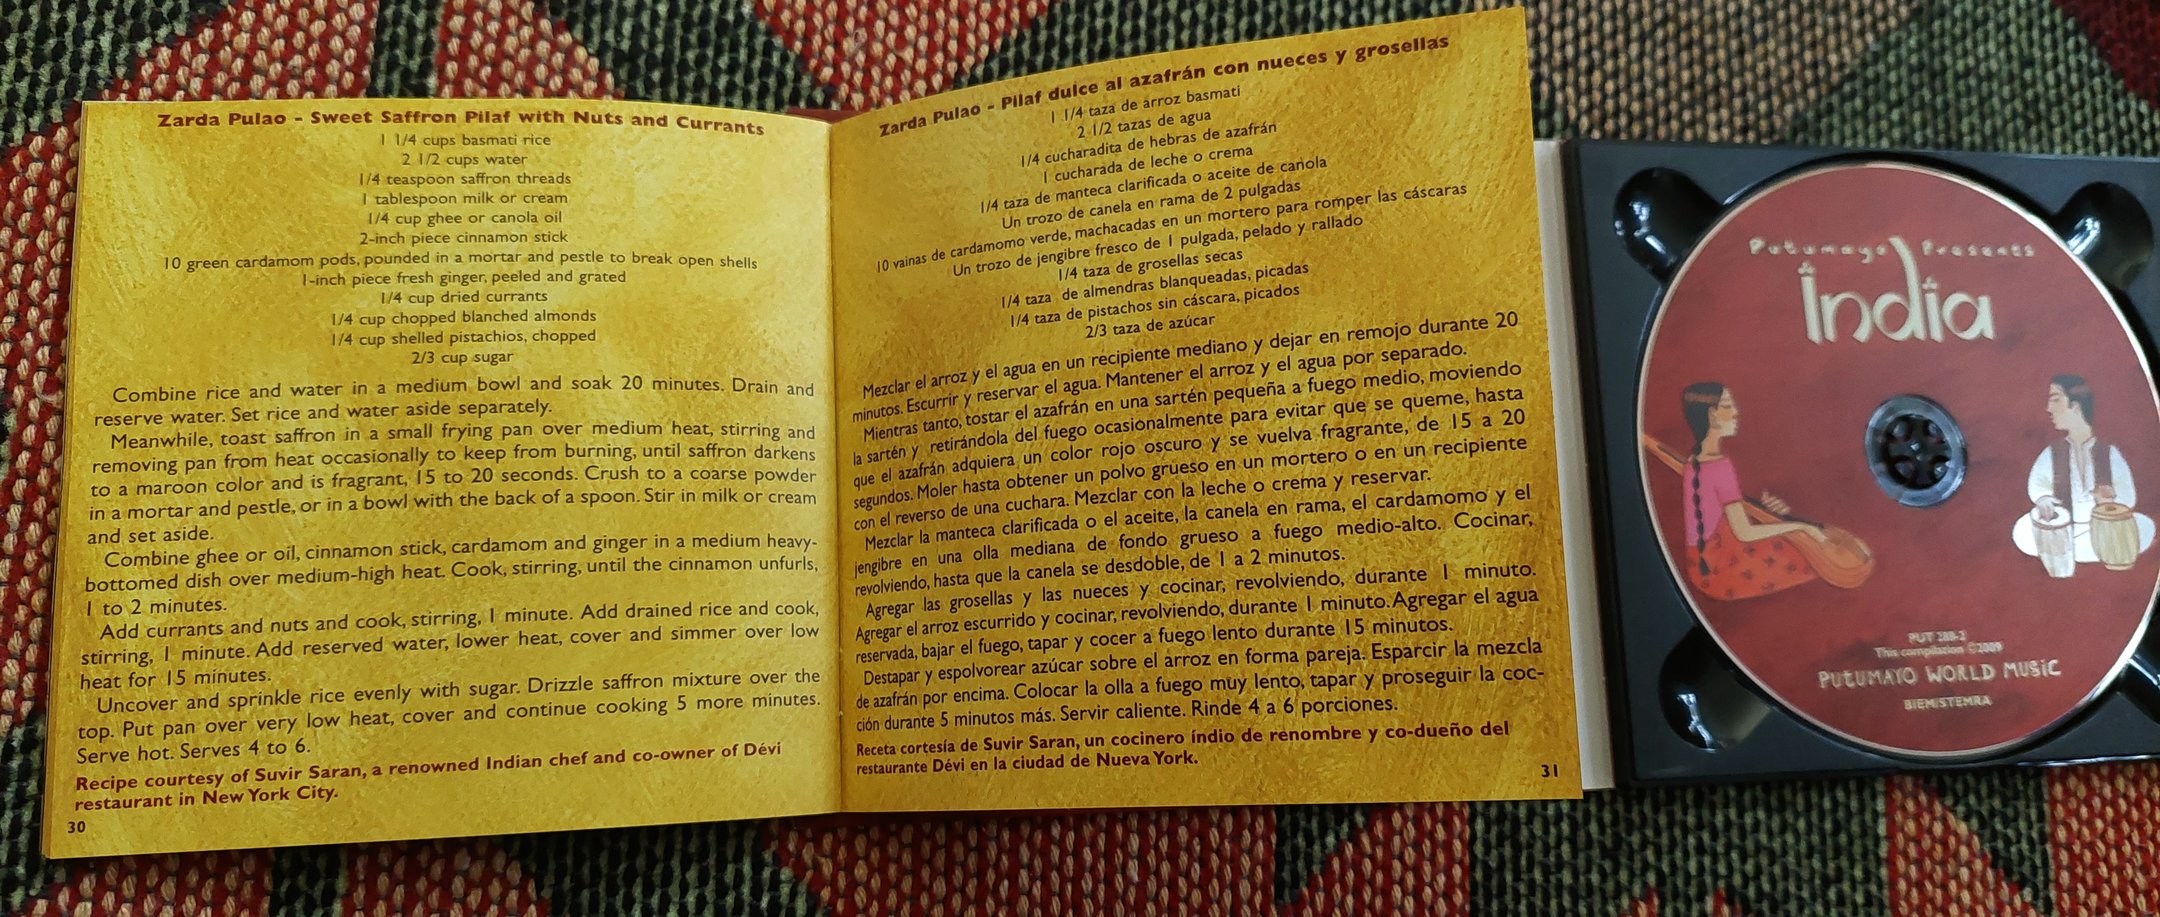 Zarda Pulao - Sweet Saffron Pilaf with Nuts and Currants
1 1/4 cups basmati rice
2 1/2 cups water
1/4 teaspoon saffron threads
1 tablespoon milk or cream
1/4 cup ghee or canola oil
2-inch piece cinnamon stick
10 green cardamom pods, pounded in a mortar and pestle to break open shells
1-inch piece fresh ginger, peeled and grated
1/4 cup dried currants
1/4 cup chopped blanched almonds
1/4 cup shelled pistachios, chopped
2/3 cup sugar
Combine rice and water in a medium bowl and soak 20 minutes. Drain and
reserve water. Set rice and water aside separately.
Meanwhile, toast saffron in a small frying pan over medium heat, stirring and
removing pan from heat occasionally to keep from burning, until saffron darkens
to a maroon color and is fragrant, 15 to 20 seconds. Crush to a coarse powder
in a mortar and pestle, or in a bowl with the back of a spoon. Stir in milk or cream
and set aside.
Combine ghee or oil, cinnamon stick, cardamom and ginger in a medium heavy-
bottomed dish over medium-high heat. Cook, stirring, until the cinnamon unfurls,
1 to 2 minutes.
Add currants and nuts and cook, stirring, 1 minute. Add drained rice and cook,
stirring, 1 minute. Add reserved water, lower heat, cover and simmer over low
heat for 15 minutes.
Uncover and sprinkle rice evenly with sugar. Drizzle saffron mixture over the
top. Put pan over very low heat, cover and continue cooking 5 more minutes.
Serve hot. Serves 4 to 6.
Recipe courtesy of Suvir Saran, a renowned Indian chef and co-owner of Dévi
restaurant in New York City.
30
Zarda Pulao - Pilaf dulce al azafrán con nueces y grosellas
1 1/4 taza de arroz basmati
2 1/2 tazas de agua
1/4 cucharadita de hebras de azafrán
1 cucharada de leche o crema
1/4 taza de manteca clarificada o aceite de canola
Un trozo de canela en rama de 2 pulgadas
10 vainas de cardamomo verde, machacadas en un mortero para romper las cáscaras
Un trozo de jengibre fresco de 1 pulgada, pelado y rallado
1/4 taza de grosellas secas
1/4 taza de almendras blanqueadas, picadas
1/4 taza de pistachos sin cáscara, picados
2/3 taza de azúcar
Mezclar el arroz y el agua en un recipiente mediano y dejar en remojo durante 20
minutos. Escurrir y reservar el agua. Mantener el arroz y el agua por separado.
Mientras tanto, tostar el azafrán en una sartén pequeña a fuego medio, moviendo
la sartén y retirándola del fuego ocasionalmente para evitar que se queme, hasta
que el azafrán adquiera un color rojo oscuro y se vuelva fragrante, de 15 a 20
segundos. Moler hasta obtener un polvo grueso en un mortero o en un recipiente
con el reverso de una cuchara. Mezclar con la leche o crema y reservar.
Mezclar la manteca clarificada o el aceite, la canela en rama, el cardamomo y el
jengibre en una olla mediana de fondo grueso a fuego medio-alto. Cocinar,
revolviendo, hasta que la canela se desdoble, de 1 a 2 minutos.
Agregar las grosellas y las nueces y cocinar, revolviendo, durante 1 minuto.
Agregar el arroz escurrido y cocinar, revolviendo, durante 1 minuto. Agregar el agua
reservada, bajar el fuego, tapar y cocer a fuego lento durante 15 minutos.
Destapar y espolvorear azúcar sobre el arroz en forma pareja. Esparcir la mezcla
de azafrán por encima. Colocar la olla a fuego muy lento, tapar y proseguir la coc-
ción durante 5 minutos más. Servir caliente. Rinde 4 a 6 porciones.
Receta cortesía de Suvir Saran, un cocinero indio de renombre y co-dueño del
restaurante Dévi en la ciudad de Nueva York.
31
Putumayo Presents
India
PUT 288-2
This compilation ©2009
PUTUMAYO WORLD MUSIC
BIEM/STEMRA